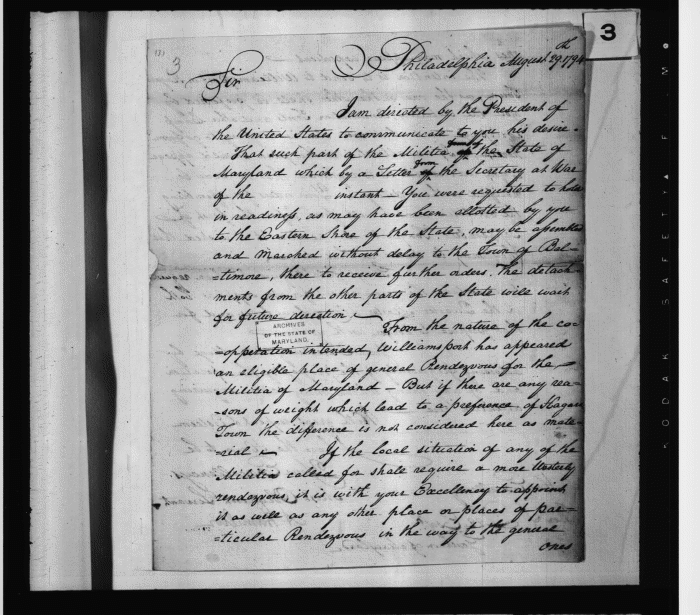 3
181
3
Philadelphia August 29th 1794
Sir
I am directed by the President of
the United States to communicate to you his desire -
That such part of the Militia of the State of
Maryland which by a Letter from the Secretary at War
of the instant - You were requested to hold
in readiness, as may have been allotted by you
to the Eastern Shore of the State, may be assembled
and Marched without delay to the Town of Bal=
=timore, there to receive further orders. The detach=
ments from the other parts of the State will wait
for future direction
From the nature of the co=
ARCHIVES
OF THE STATE OF
MARYLAND.
=opperation intended, Williamsport has appeared
an eligible place of general Rendezvous for the
Militia of Maryland - But if there are any rea=
=sons of weight which lead to a preference of Hagars
Town the difference is not considered here as mate=
=rial
If the local situation of any of the
Militia called for shall require a more Westerly
rendezvous, it is with your Excellency to appoint
it as well as any other place or places of par=
=ticular Rendezvous in the way to the general
ones
KODAK SAFETY FILM